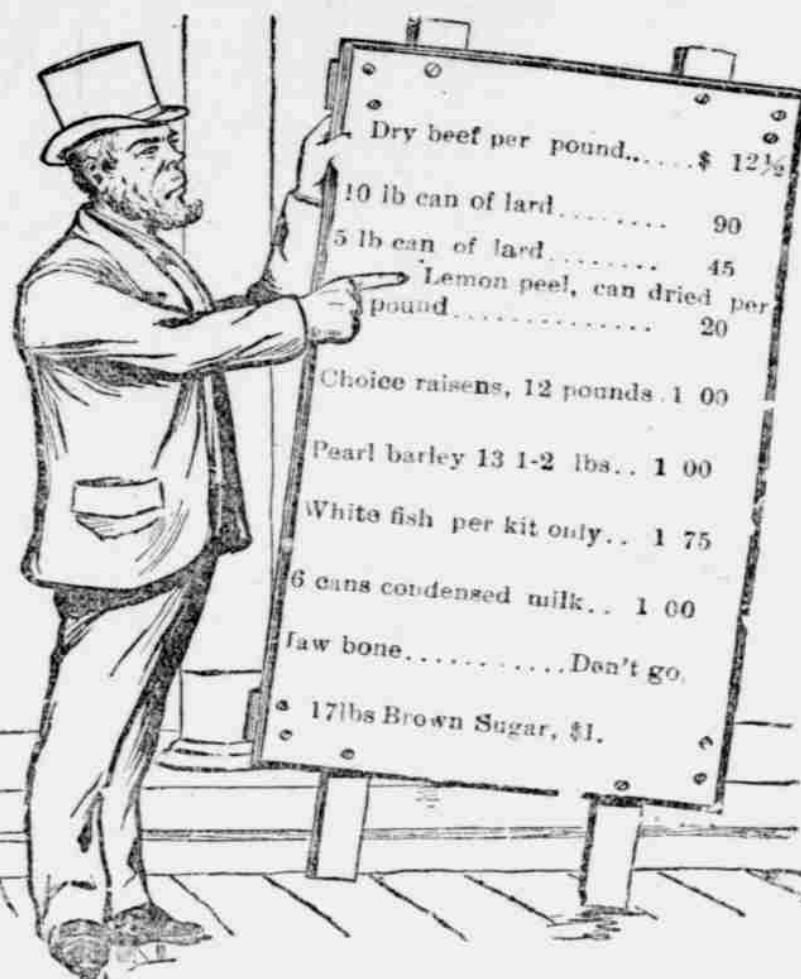 Dry beef per pound........$ 12½
10 lb can of lard........ 90
5 lb can of lard........ 45
Lemon peel, can dried per
pound............... 20
Choice raisens, 12 pounds.1 00
Pearl barley 13 1-2 lbs.. 1 00
White fish per kit only.. 1 75
6 cans condensed milk.. 1 00
Jaw bone............Don't go.
17lbs Brown Sugar, $1.